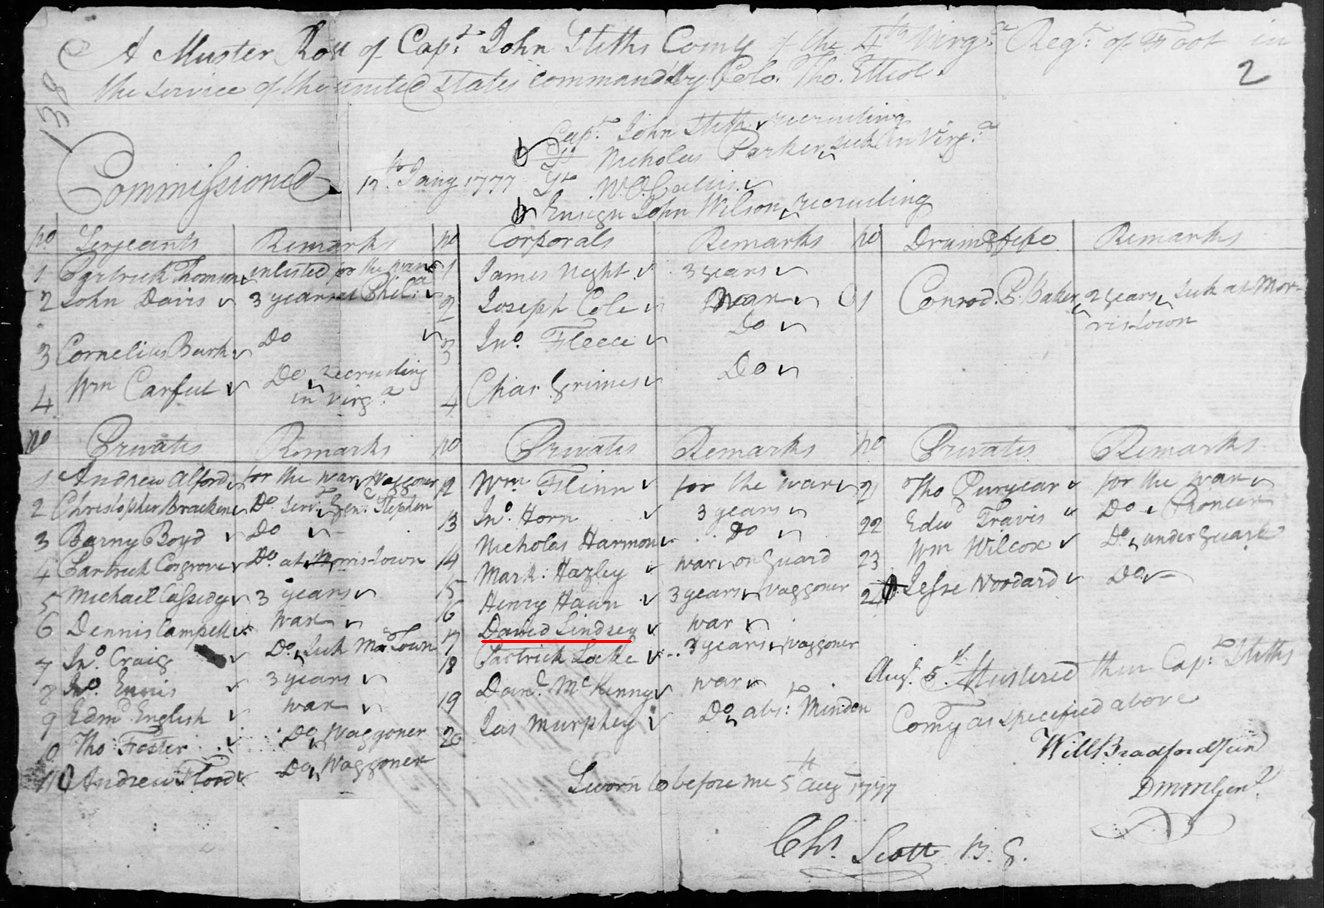 138
A Muster Roll of Capt. John Stiths Comy of the 4th Virga. Regt. of Foot in
the Service of the united States commanded by Colo. Tho. Elliot
2
Commissioned
Capt. John Stith recruiting
Nicholas Parker sick in Virga
17 Jany 1777
Ensign John Wilson recruiting
No Serjeants Remarks No Corporals Remarks No Drum & fife Remarks
1 Partrick Thomson enlisted for the war 1 James Night 3 years
2 John Davis 3 years at Phila. 2 Joseph Cole War 1 Conrod P. Baker 2 years Sick at Mor-
ristown
3 Cornelius Burk Do 3 Jno. Fleece Do
4 Wm Carfut Do recruiting 4 Chas. Grimes Do
in Virga
No Privates Remarks No Privates Remarks No Privates Remarks
1 Andrew Alford for the war Waggoner 12 Wm. Flinn for the War 21 Tho Puryear for the war
2 Christopher Bracken Do Servt. Genl. Stephen 13 Jno. Horn 3 years 22 Edwd Travis Do Pioneer
3 Barny Boyd Do Nicholas Harmon Do 23 Wm Wilcox Do under Guard
4 Partrick Cosgrove Do at Morristown 14 Mark: Hazley war on Guard 24 Jesse Woodard Do
5 Michael Cassidey 3 years 15 Henry Hawn 3 years Waggoner
6 Dennis Campbell War 16 David Lindsey war
7 Jno. Craig Do Sick Mo. Town 17 Partrick Locke 3 years Waggoner
8 Jno. Ennis 3 years 18 Danl. McKenney war
9 Edmd English war 19 Jas Murphey Do abs:
0 Tho Foster Do Waggoner 20
11 Andrew Flood Do Waggoner
Augt. 5th Mustered then Capt. Stiths
Comy as specified above
Will Bradford Jun
DMMGenl.
Sworn to before me 5th Augt 1777
Chs. Scott B. G.